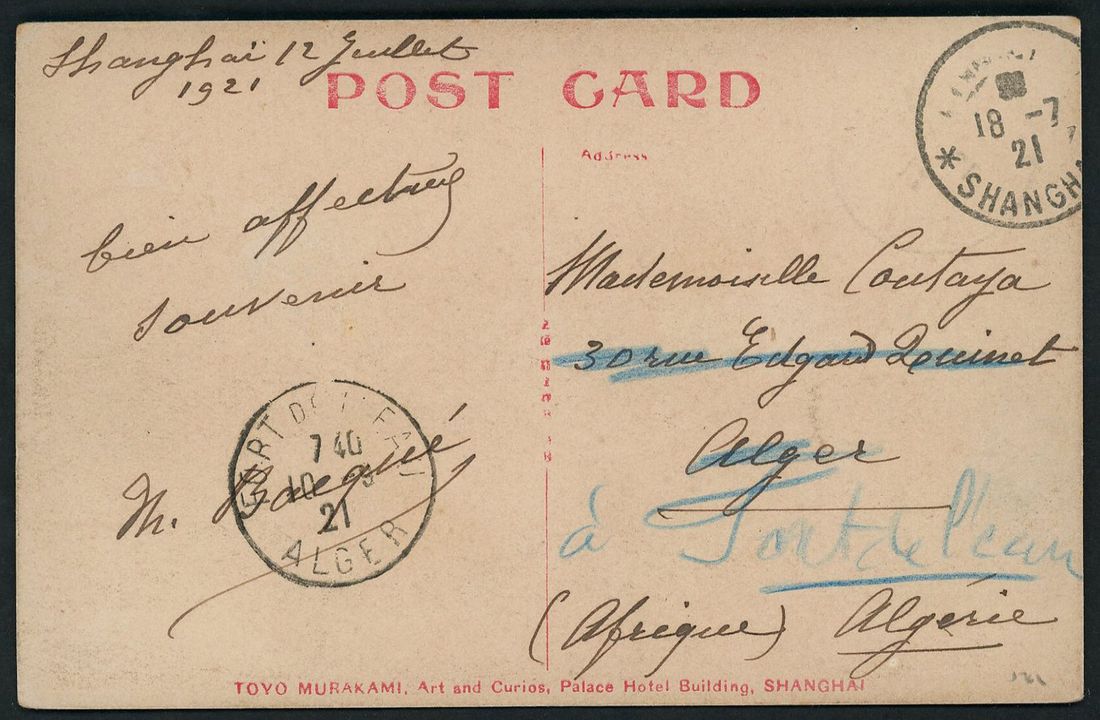 Shanghaï 12 Juillet
1921
POST CARD
18 -7
21
* SHANGH
Address
bien affectueux
souvenir
Mademoiselle Coutaya
30 rue Edgard Quinet
Alger
à Fort de l'eau
(Afrique) Algérie
M.
FORT DE L'EAU
7 40
10
21
ALGER
TOYO MURAKAMI, Art and Curios, Palace Hotel Building, SHANGHAI